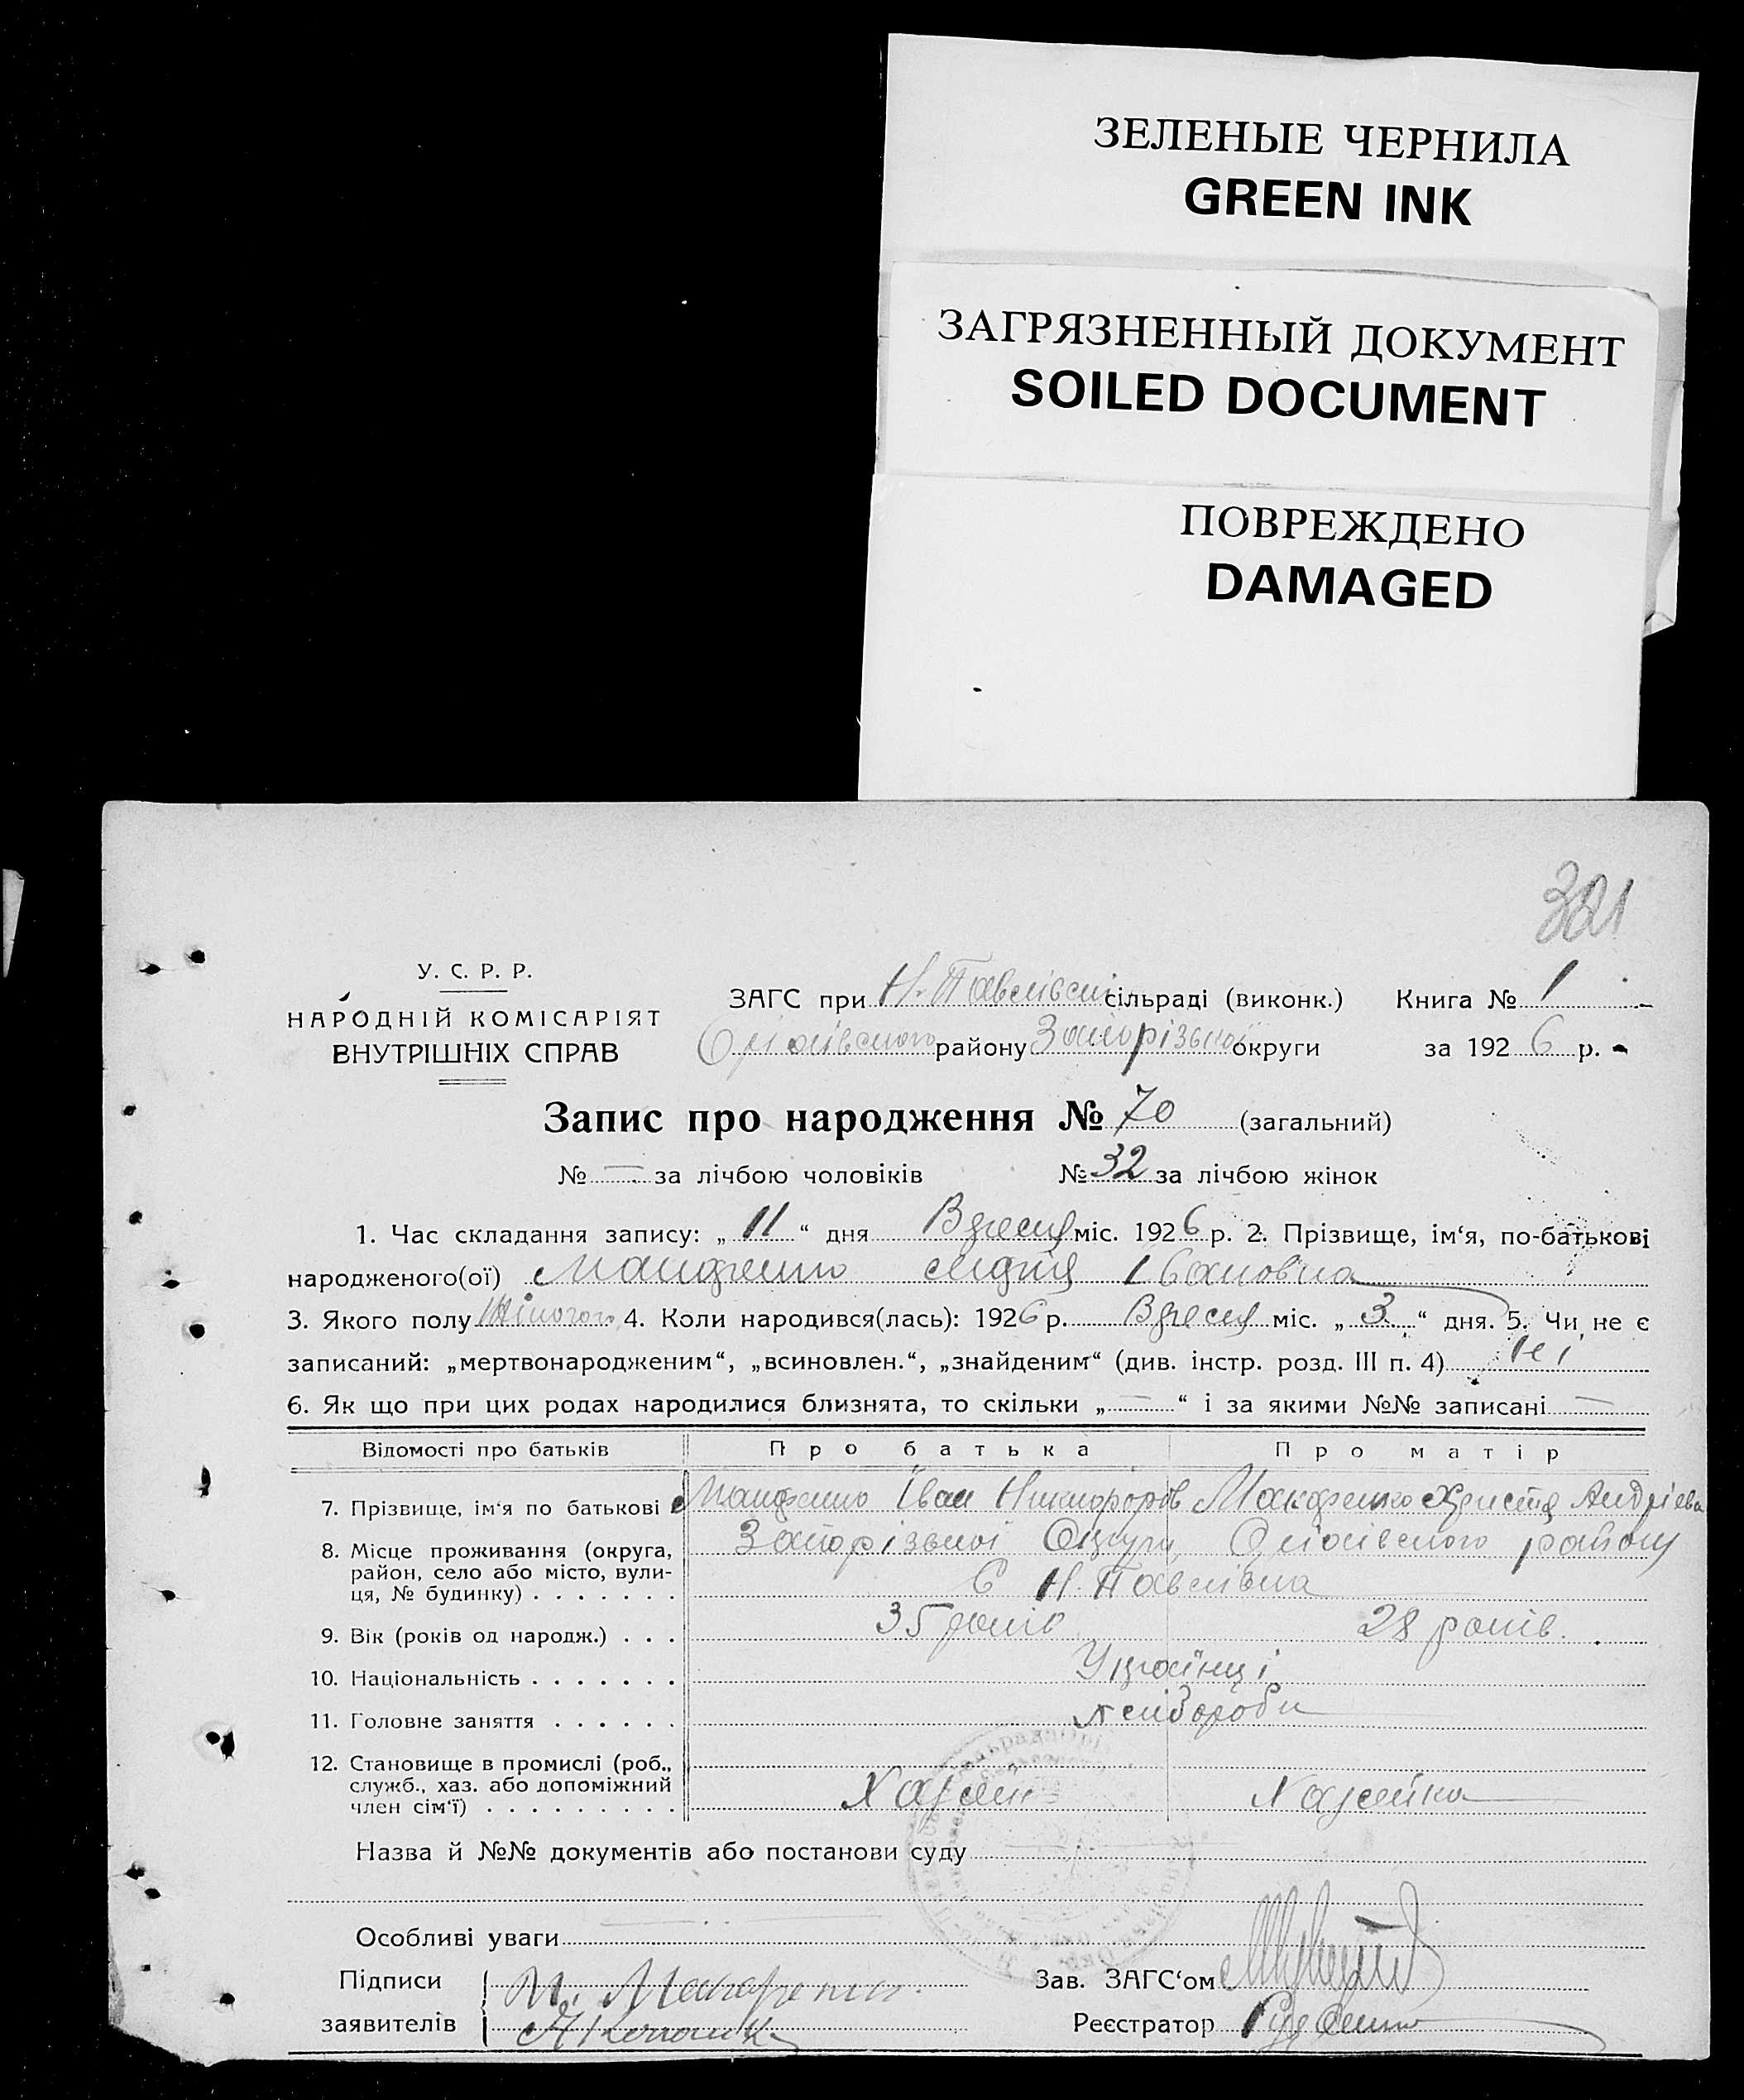 ЗЕЛЕНЫЕ ЧЕРНИЛА
GREEN INK
ЗАГРЯЗНЕННЫЙ ДОКУМЕНТ
SOILED DOCUMENT
ПОВРЕЖДЕНО
DAMAGED
321
У. С. Р. Р.
НАРОДНІЙ КОМІСАРІЯТ
ВНУТРІШНІХ СПРАВ
ЗАГС при Н. Павлівські сільраді (виконк.) Книга № 1
району Запорізької округи за 1926 р.
Запис про народження № 70 (загальний)
№ — за лічбою чоловіків № 32 за лічбою жінок
1. Час складання запису: „11“ дня Вресня міс. 1926 р. 2. Прізвище, ім‘я, по-батькові
народженого(ої) Макаренко Лидія Івановна
3. Якого полу Жіночого 4. Коли народився(лась): 1926 р. Вресня міс. „3“ дня. 5. Чи не є
записаний: „мертвонародженим“, „всиновлен.“, „знайденим“ (див. інстр. розд. III п. 4) Ні
6. Як що при цих родах народилися близнята, то скільки „—“ і за якими №№ записані —
Відомості про батьків Про батька Про матір
7. Прізвище, ім‘я по батькові Макаренко Іван Никифоров Макаренко Христя Андріева
8. Місце проживання (округа, район, село або місто, вулиця, № будинку) Запорізької Округи, району
С Н. Павлівка
9. Вік (років од народж.) 35 років 28 років.
10. Національність Українці
11. Головне заняття Хлібороби
12. Становище в промислі (роб., служб., хаз. або допоміжний член сім‘ї) Хазяїн Хазяйка
Назва й №№ документів або постанови суду
Особливі уваги
Підписи И. Макаренко Зав. ЗАГС‘ом
заявителів Реєстратор